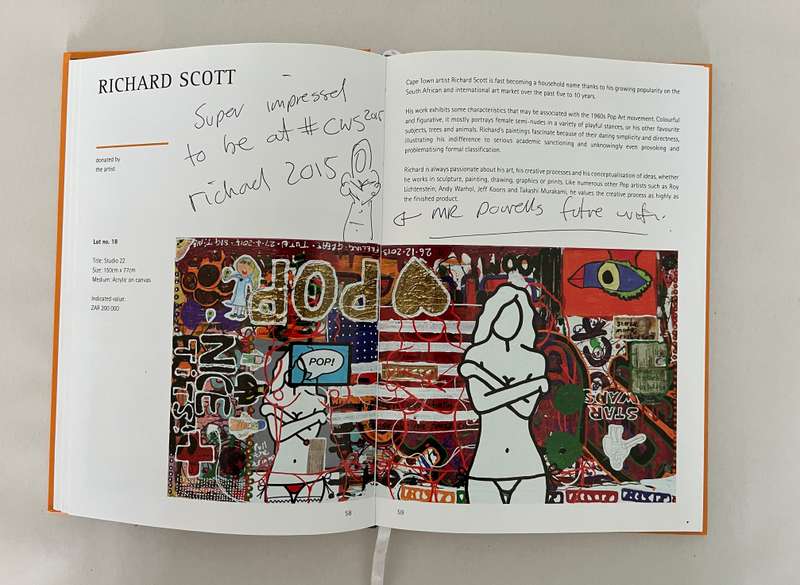 RICHARD SCOTT
Super impressed
to be at #CWS2015
richard 2015
donated by
the artist
Lot no. 18
Title: Studio 22
Size: 150cm x 77cm
Medium: Acrylic on canvas
Indicated value:
ZAR 200 000
Cape Town artist Richard Scott is fast becoming a household name thanks to his growing popularity on the
South African and international art market over the past five to 10 years.
His work exhibits some characteristics that may be associated with the 1960s Pop Art movement. Colourful
and figurative, it mostly portrays female semi-nudes in a variety of playful stances, or his other favourite
subjects, trees and animals. Richard's paintings fascinate because of their daring simplicity and directness,
illustrating his indifference to serious academic sanctioning and unknowingly even provoking and
problematising formal classification.
Richard is always passionate about his art, his creative processes and his conceptualisation of ideas, whether
he works in sculpture, painting, drawing, graphics or prints. Like numerous other Pop artists such as Roy
Lichtenstein, Andy Warhol, Jeff Koons and Takashi Murakami, he values the creative process as highly as
the finished product.
MR Powells future wife.
26-12-2013
POP
POP!
NICE
TITS!
STAR
WARS
richard
richard
richard
58
59